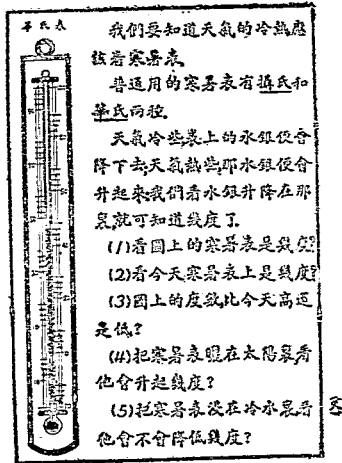 華氏表
我們要知道天氣的冷熱應
該看寒暑表
普通用的寒暑表有攝氏和
華氏兩種
天氣冷些表上的水銀便會
降下去天氣熱些那水銀便會
升起來我們看水銀升降在那
裏就可知道幾度了
(1)看圖上的寒暑表是幾度?
(2)看今天寒暑表上是幾度?
(3)圖上的度數比今天高還
是低?
(4)把寒暑表曬在太陽裏看
他會升起幾度?
(5)把寒暑表浸在冷水裏看
他會不會降低幾度?